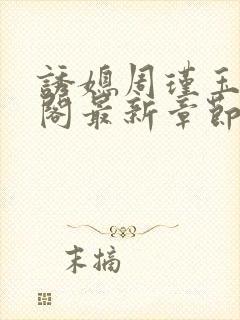 誘媳周瑾玉
閣最新章節
末摘